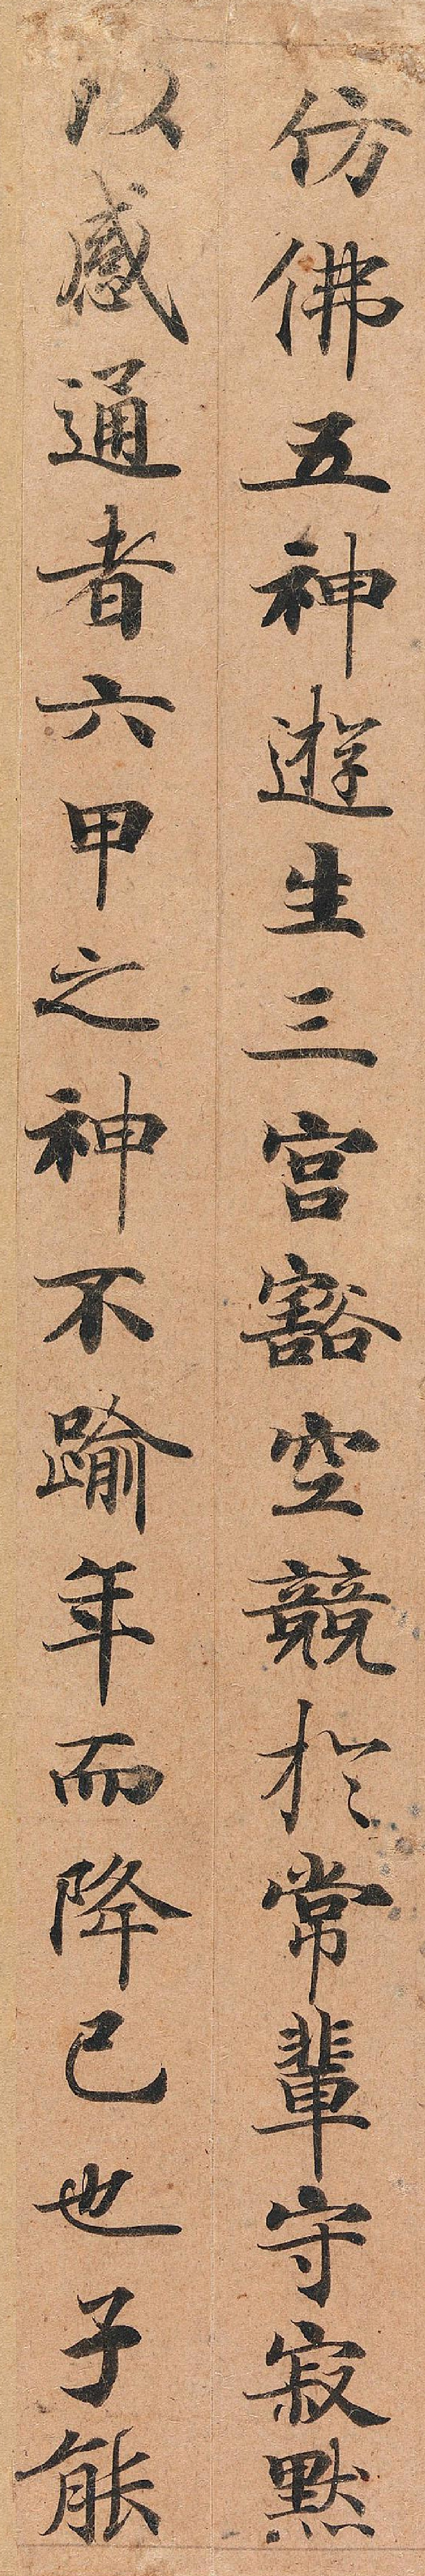 仿佛五神遊生三宮豁空競於常輩守寂默
以感通者六甲之神不踰年而降已也子能